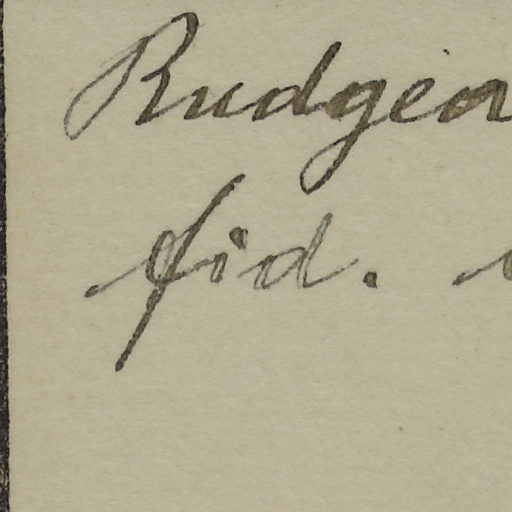 Rudgea
fid.